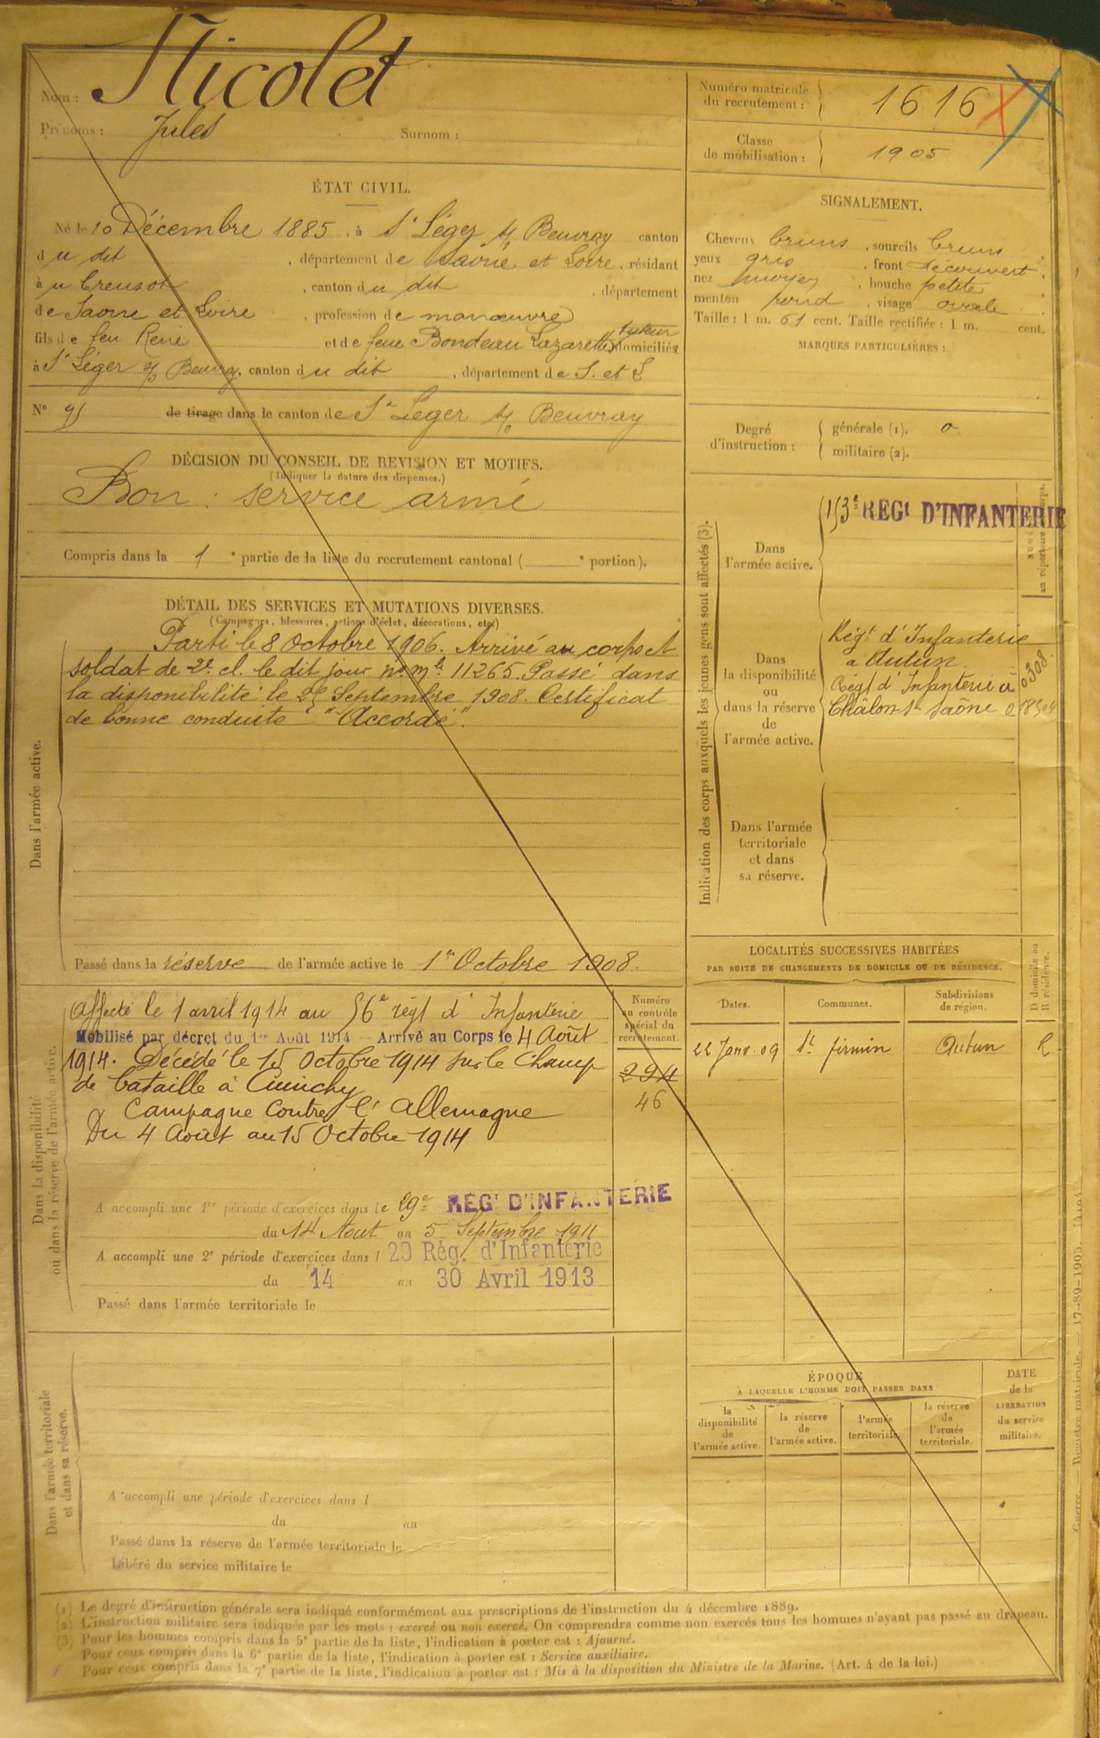 Nom : Nicolet
Prénoms : Jules Surnom :
Numéro matricule du recrutement : 1616
Classe de mobilisation : 1905
ÉTAT CIVIL.
Né le 10 Décembre 1885, à St Léger s/s Beuvray canton
du dit, département de Saône et Loire, résidant
au Creusot, canton du dit, département
de Saone et Loire, profession de manœuvre
fils de feu René et de feue Bondeau Lazarette tuteur domiciliés
à St Léger s/s Beuvray, canton du dit, département de S. et L
N° 91 de tirage dans le canton de St Léger s/s Beuvray
SIGNALEMENT.
Cheveux bruns, sourcils bruns
yeux gris, front découvert,
nez moyen, bouche petite
menton rond, visage ovale
Taille : 1 m. 61 cent. Taille rectifiée : 1 m. cent.
MARQUES PARTICULIÈRES :
Degré d'instruction :
générale (1). 0
militaire (2).
DÉCISION DU CONSEIL DE REVISION ET MOTIFS.
(Indiquer la nature des dispenses.)
Bon : service armé
Compris dans la 1e partie de la liste du recrutement cantonal ( e portion).
DÉTAIL DES SERVICES ET MUTATIONS DIVERSES.
(Campagnes, blessures, actions d'éclat, décorations, etc.)
Dans l'armée active.
Parti le 8 Octobre 1906. Arrivé au corps et
soldat de 2e cl. le dit jour no mle 11265. Passé dans
la disponibilité le 25 Septembre 1908. Certificat
de bonne conduite "Accordé".
Passé dans la réserve de l'armée active le 1er Octobre 1908.
Indication des corps auxquels les jeunes gens sont affectés (3).
Dans l'armée active.
153e RÉGt D'INFANTERIE
Dans la disponibilité ou dans la réserve de l'armée active.
Régt d'Infanterie
à Autun 0308.
Régt d'Infanterie à
Châlon s- Saône
Dans l'armée territoriale et dans sa réserve.
Dans la disponibilité ou dans la réserve de l'armée active.
Affecté le 1 avril 1914 au 56e régt d'Infanterie
Mobilisé par décret du 1er Août 1914 - Arrivé au Corps le 4 Août
1914. Décédé le 15 Octobre 1914 sur le Champ
de bataille à Cuinchy
Campagne contre l'Allemagne
Du 4 Août au 15 Octobre 1914
Numéro au contrôle spécial du recrutement.
294
46
A accompli une 1re période d'exercices dans le 29e RÉGt D'INFANTERIE
du 14 Aout au 5 Septembre 1911
A accompli une 2e période d'exercices dans l 29 Rég. d'Infanterie
du 14 au 30 Avril 1913
Passé dans l'armée territoriale le
LOCALITÉS SUCCESSIVES HABITÉES
PAR SUITE DE CHANGEMENTS DE DOMICILE OU DE RÉSIDENCE.
D domicile ou R résidence.
Dates. Communes. Subdivisions de région.
22 Janv. 09 St firmin Autun R
ÉPOQUE
A LAQUELLE L'HOMME DOIT PASSER DANS
la disponibilité de l'armée active.
la réserve de l'armée active.
l'armée territoriale.
la réserve de l'armée territoriale.
DATE de la LIBÉRATION du service militaire.
Dans l'armée territoriale et dans sa réserve.
A accompli une période d'exercices dans l
du au
Passé dans la réserve de l'armée territoriale le
Libéré du service militaire le
(1) Le degré d'instruction générale sera indiqué conformément aux prescriptions de l'instruction du 4 décembre 1889.
(2) L'instruction militaire sera indiquée par les mots : exercé ou non exercé. On comprendra comme non exercés tous les hommes n'ayant pas passé au drapeau.
(3) Pour les hommes compris dans la 5e partie de la liste, l'indication à porter est : Ajourné.
Pour ceux compris dans la 6e partie de la liste, l'indication à porter est : Service auxiliaire.
Pour ceux compris dans la 7e partie de la liste, l'indication à porter est : Mis à la disposition du Ministre de la Marine. (Art. 4 de la loi.)
Guerre. — Registre matricule. — 17-89-1905.